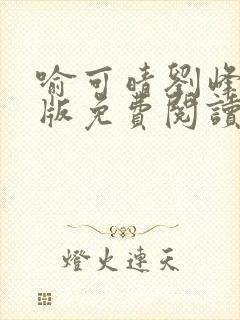 喻可晴劉峰
版免費閱讀
燈火連天